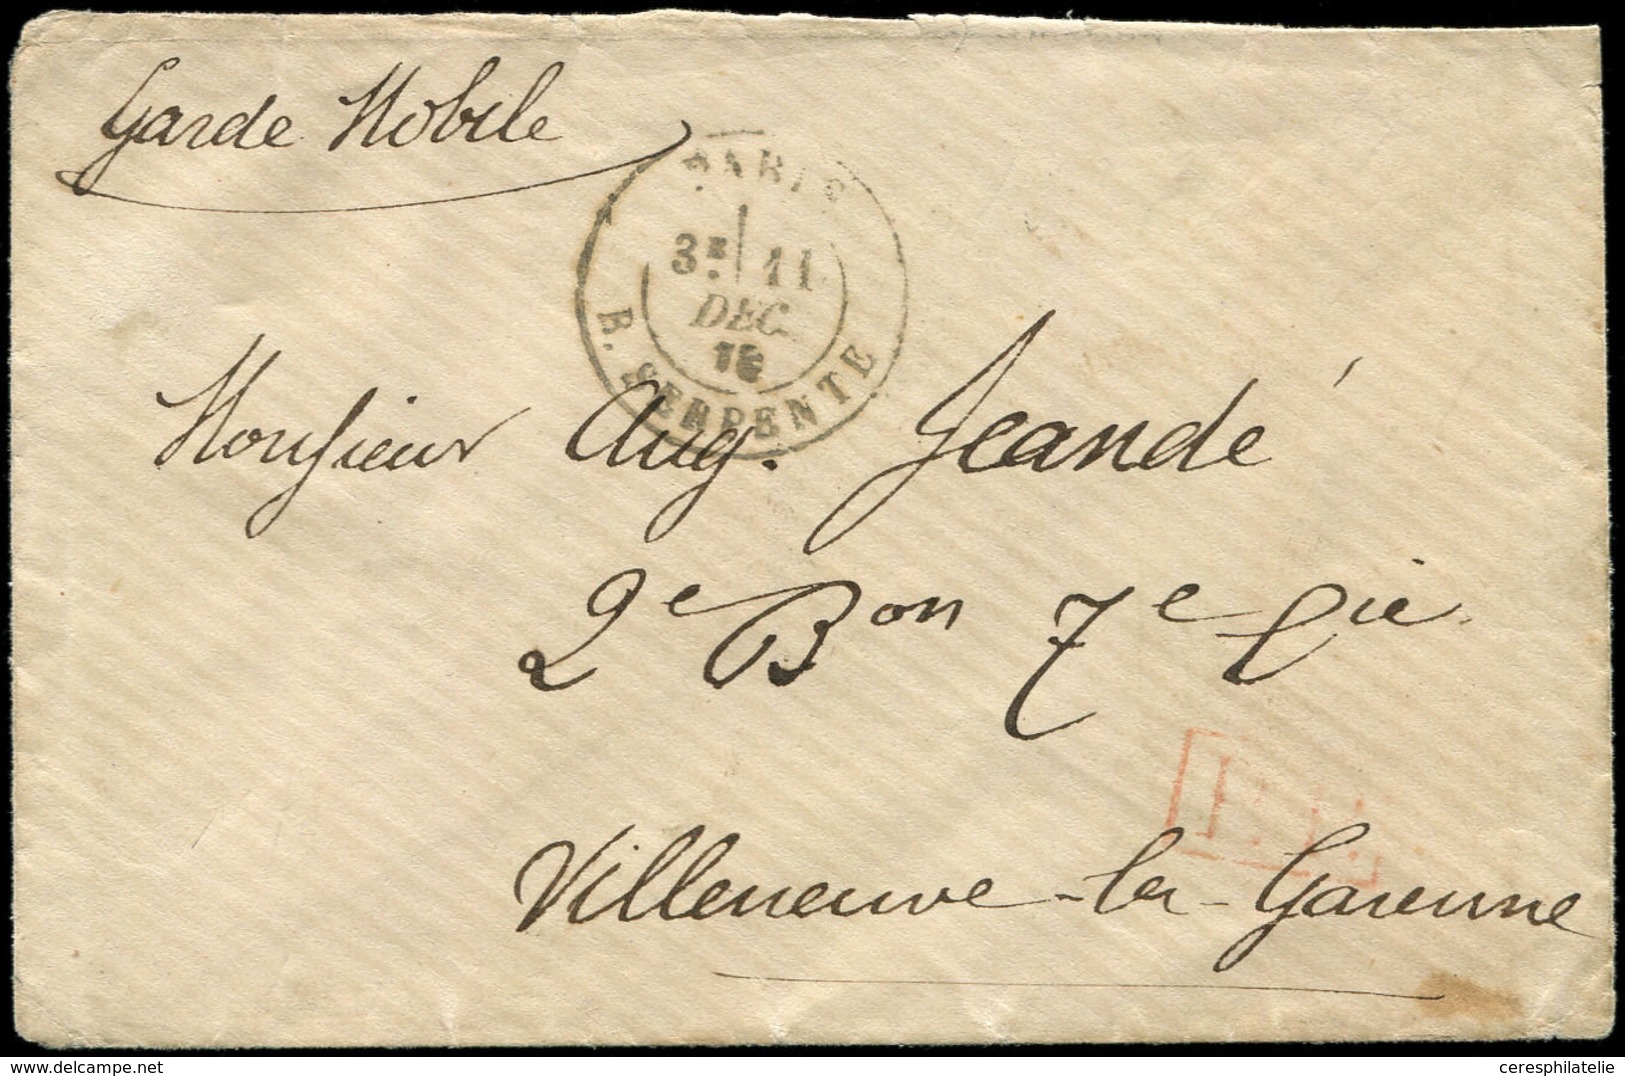 Garde Mobile
PARIS
3E 11
DEC.
R. SERPENTE
Monsieur Aug. Jeandé
2e Bon 7e Cie.
P.P.
Villeneuve-la-Garenne
ceresphilatelie